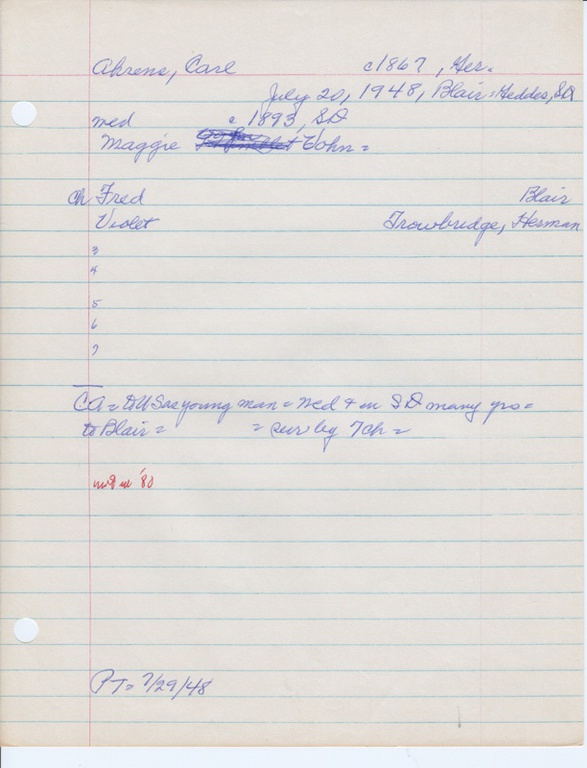 Ahrens, Carl c1867, Ger.
July 20, 1948, Blair = Geddes, SD
med c 1893, SD
Maggie Vohn =
ch Fred Blair
Violet Trowbridge, Herman
3
4
5
6
7
CA = to US as young man = med & in SD many yrs =
to Blair = = sur by 7 ch =
'80
PT = 7/29/48